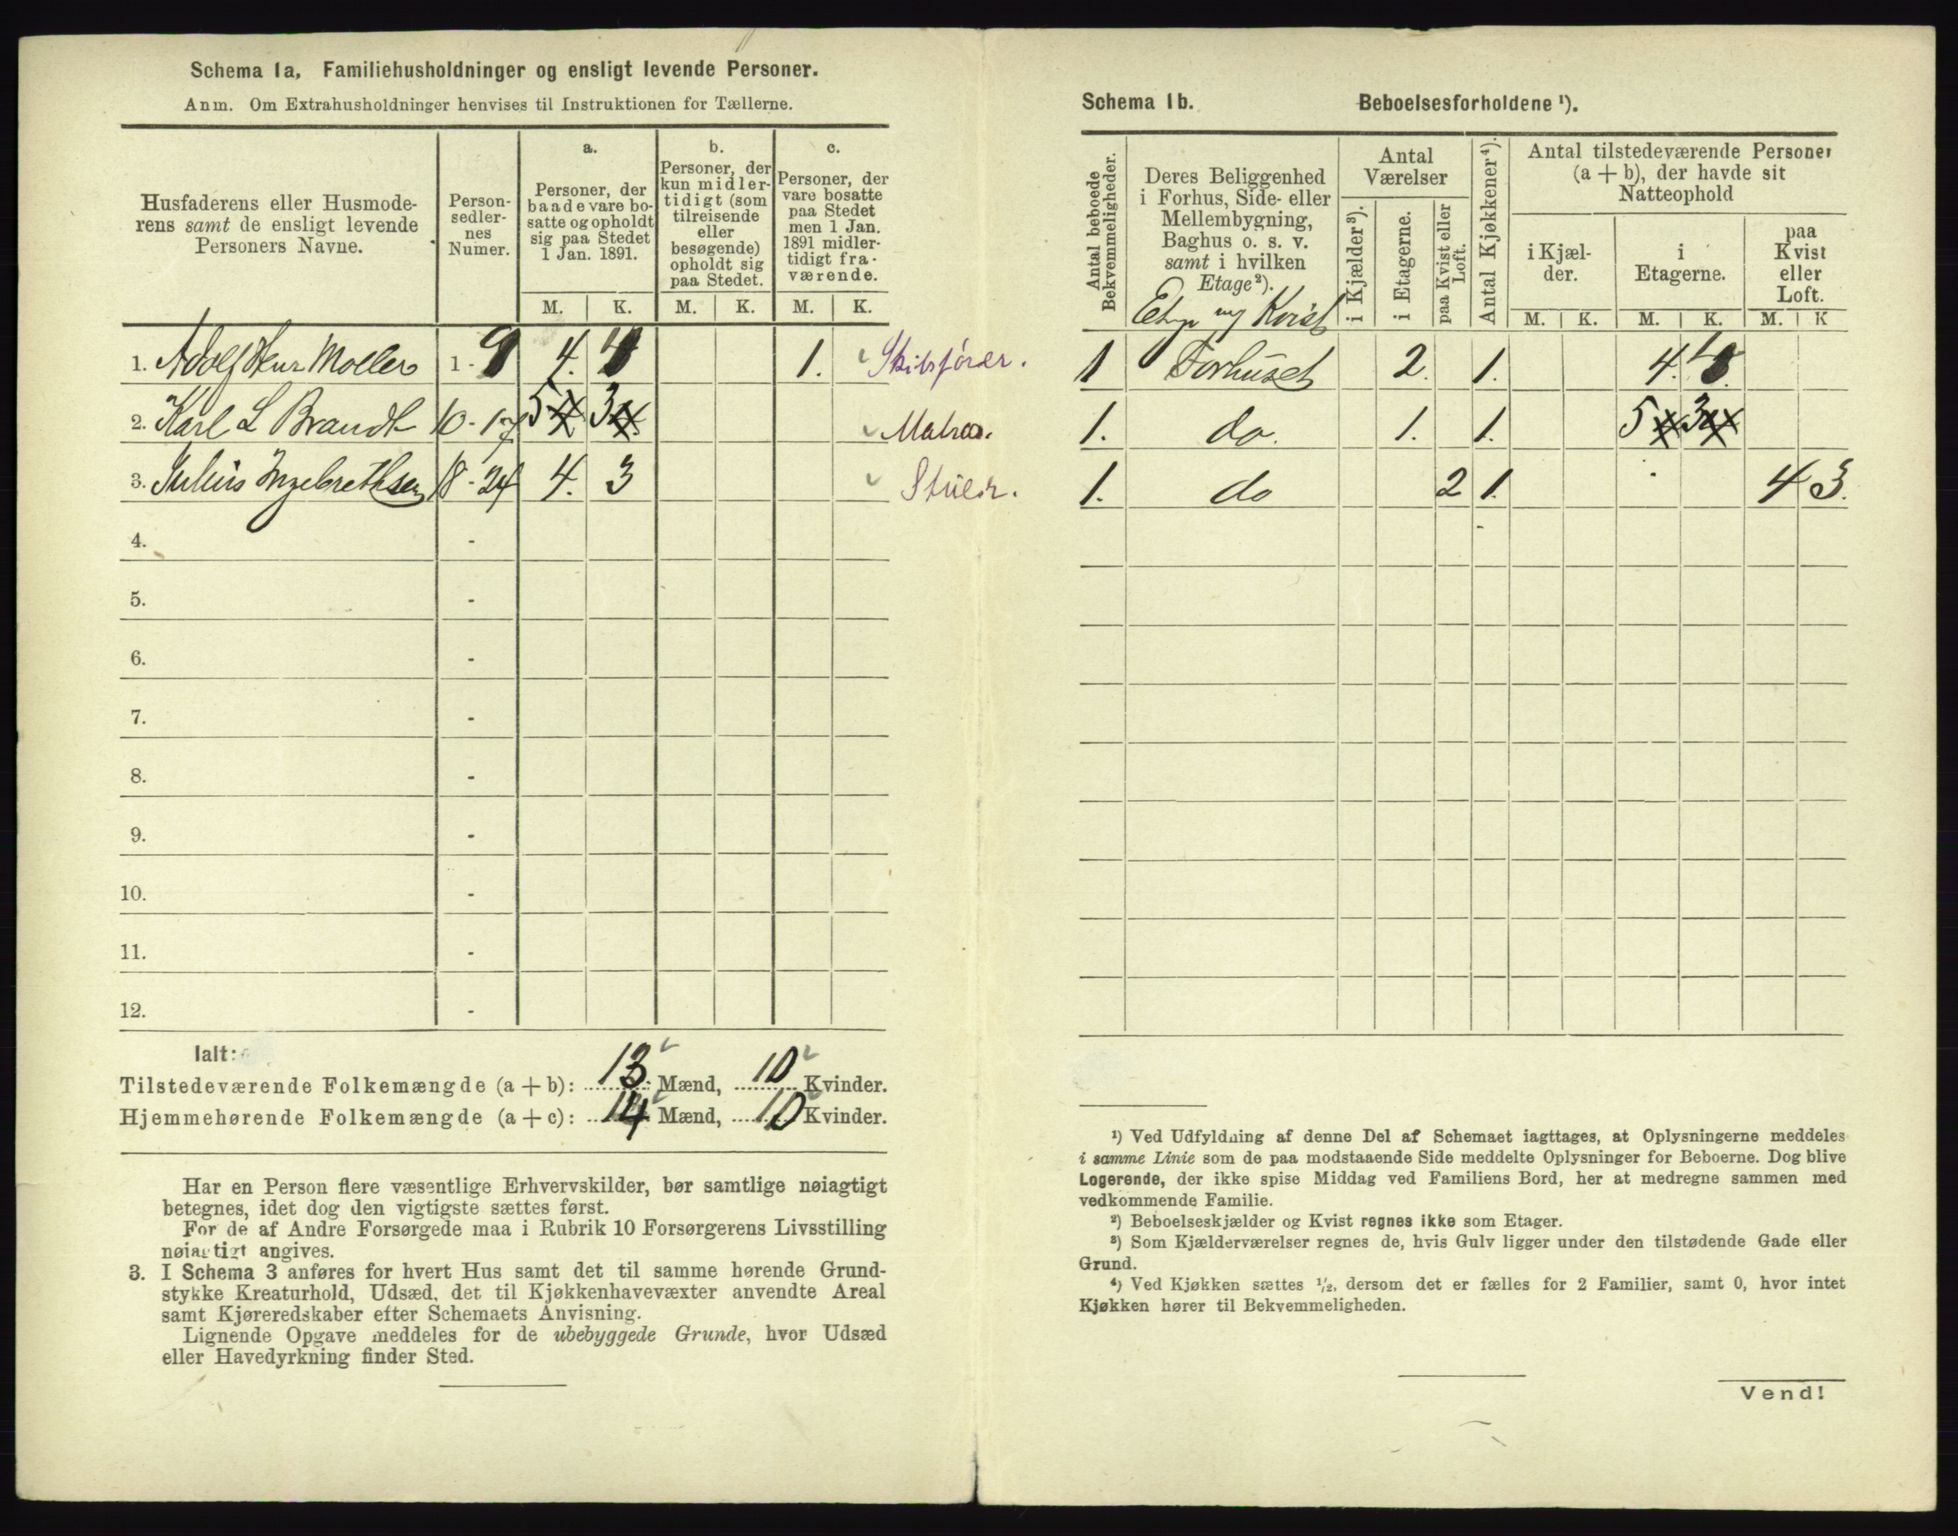 Schema 1a, Familiehusholdninger og ensligt levende Personer.
Anm. Om Extrahusholdninger henvises til Instruktionen for Tællerne.
Husfaderens eller Husmode-
rens samt de ensligt levende
Personers Navne.
Person-
sedler-
nes
Numer.
a.
Personer, der
baade vare bo-
satte og opholdt
sig paa Stedet
1 Jan. 1891.
b.
Personer, der
kun midler-
tidigt (som
tilreisende
eller
besøgende)
opholdt sig
paa Stedet.
c.
Personer, der
vare bosatte
paa Stedet
men 1 Jan.
1891 midler-
tidigt fra-
værende.
M. K. M. K. M. K.
1. Adolf Moller 1 - 9 4. 1. Skibsfører.
2. Karl L Brandt 10 - 17 5 3 Matros.
3. Julius Ingebrethsen 18 - 24 4. 3
4. -
5. -
6. -
7. -
8. -
9. -
10. -
11. -
12. -
Ialt:
Tilstedeværende Folkemængde (a + b): 13 Mænd, 10 Kvinder.
Hjemmehørende Folkemængde (a + c): 14 Mænd, 10 Kvinder.
Har en Person flere væsentlige Erhvervskilder, bør samtlige nøiagtigt
betegnes, idet dog den vigtigste sættes først.
For de af Andre Forsørgede maa i Rubrik 10 Forsørgerens Livsstilling
nøiagtigt angives.
3. I Schema 3 anføres for hvert Hus samt det til samme hørende Grund-
stykke Kreaturhold, Udsæd, det til Kjøkkenhavevæxter anvendte Areal
samt Kjøreredskaber efter Schemaets Anvisning.
Lignende Opgave meddeles for de ubebyggede Grunde, hvor Udsæd
eller Havedyrkning finder Sted.
Schema 1b. Beboelsesforholdene ¹).
Antal beboede
Bekvemmeligheder.
Deres Beliggenhed
i Forhus, Side- eller
Mellembygning,
Baghus o. s. v.
samt i hvilken
Etage²).
Etage og Kvist
Antal
Værelser
i Kjælder³).
i Etagerne.
paa Kvist eller
Loft.
Antal Kjøkkener⁴).
Antal tilstedeværende Personer
(a + b), der havde sit
Natteophold
i Kjæl-
der.
i
Etagerne.
paa
Kvist
eller
Loft.
M. K. M. K. M. K
1 Forhuset 2. 1. 4.
1. do. 1. 1. 5 3
1. do 2 1. 4 3.
¹) Ved Udfyldning af denne Del af Schemaet iagttages, at Oplysningerne meddeles
i samme Linie som de paa modstaaende Side meddelte Oplysninger for Beboerne. Dog blive
Logerende, der ikke spise Middag ved Familiens Bord, her at medregne sammen med
vedkommende Familie.
²) Beboelseskjælder og Kvist regnes ikke som Etager.
³) Som Kjælderværelser regnes de, hvis Gulv ligger under den tilstødende Gade eller
Grund.
⁴) Ved Kjøkken sættes ¹/₂, dersom det er fælles for 2 Familier, samt 0, hvor intet
Kjøkken hører til Bekvemmeligheden.
Vend!